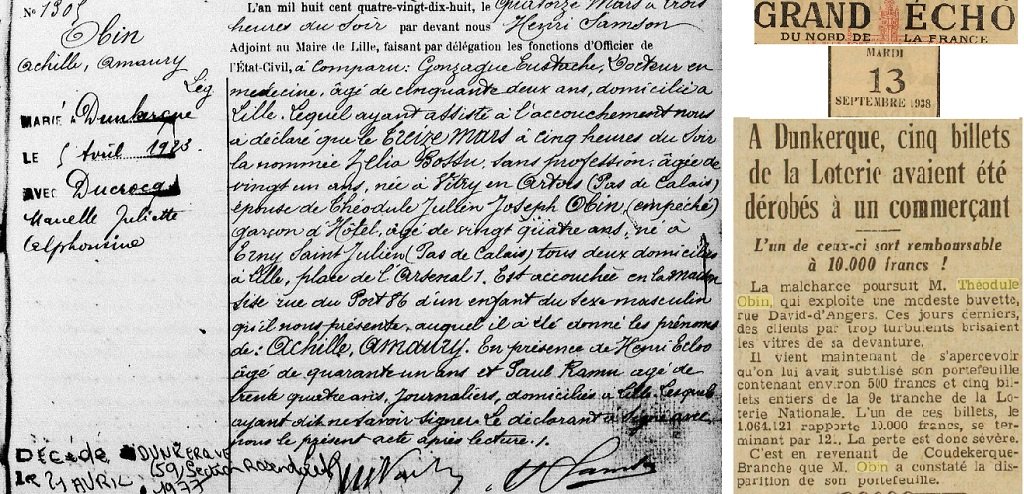 No 1305
Obin
Achille, Amaury
Lég
MARIÉ à Dunkerque
LE 5 Avril 1923
AVEC Ducrocq
Marcelle Juliette
Alphonsine
L'an mil huit cent quatre-vingt-dix-huit, le Quatorze Mars à trois
heures du Soir par devant nous Henri Samson
Adjoint au Maire de Lille, faisant par délégation les fonctions d'Officier de
l'État-Civil, à comparu: Gonzague Eustache, Docteur en
medecine, âgé de cinquante deux ans, domicilié à
Lille. Lequel ayant assisté à l'accouchement nous
a déclaré que le Treize Mars à cinq heures du Soir
la nommée Zélia Bossu, sans profession, âgée de
vingt un ans, née à Vitry en Artois (Pas de Calais)
épouse de Théodule Jullien Joseph Obin, (empêché)
garçon d'Hôtel, âgé de vingt quatre ans, né à
Erny Saint Julien (Pas de Calais) tous deux domiciliés
à Lille, place de l'Arsenal 1. Est accouchée en la maison
sise rue du Port 86 d'un enfant du Sexe masculin
qu'il nous présente, auquel il a été donné les prénoms
de: Achille, Amaury. En présence de Henri
âgé de quarante un ans et Paul Ramu âgé de
trente quatre ans, journaliers, domiciliés à Lille. Lesquels
ayant dit ne savoir signer. Le déclarant a signé avec
nous le présent acte après lecture.
DÉCÉDÉ à DUNKERQUE
(59) Section Rosendaël
LE 21 AVRIL 1977
GRAND ÉCHO
DU NORD DE LA FRANCE
MARDI
13
SEPTEMBRE 1938
A Dunkerque, cinq billets
de la Loterie avaient été
dérobés à un commerçant
L'un de ceux-ci sort remboursable
à 10.000 francs !
La malchance poursuit M. Théodule
Obin, qui exploite une modeste buvette,
rue David-d'Angers. Ces jours derniers,
des clients par trop turbulents brisaient
les vitres de sa devanture.
Il vient maintenant de s'apercevoir
qu'on lui avait subtilisé son portefeuille
contenant environ 500 francs et cinq bil-
lets entiers de la 9e tranche de la Lo-
terie Nationale. L'un de ces billets, le
1.064.121 rapporte 10.000 francs, se ter-
minant par 121. La perte est donc sévère.
C'est en revenant de Coudekerque-
Branche que M. Obin a constaté la dis-
parition de son portefeuille.